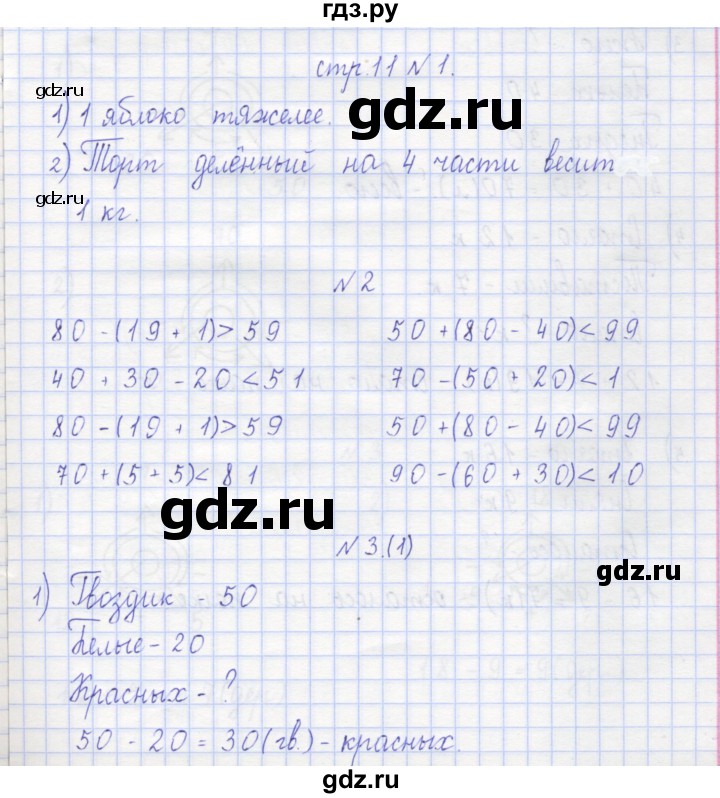 гдз.ру
стр. 11 N 1.
gdz.ru
1) 1 яблоко тяжелее.
gdz.ru
2) Торт делённый на 4 части весит
gdz.ru
1 кг.
N 2
80 - (19 + 1) > 59 50 + (80 - 40) < 99
40 + 30 - 20 < 51 70 - (50 + 20) < 1
80 - (19 + 1) > 59 50 + (80 - 40) < 99
70 + (5 + 5) < 81 90 - (60 + 30) < 10
gdz.ru
N 3.(1)
gdz.ru
1) Гвоздик - 50
Белые - 20
Красных - ?
50 - 20 = 30 (гв.) - красных.
gdz.ru